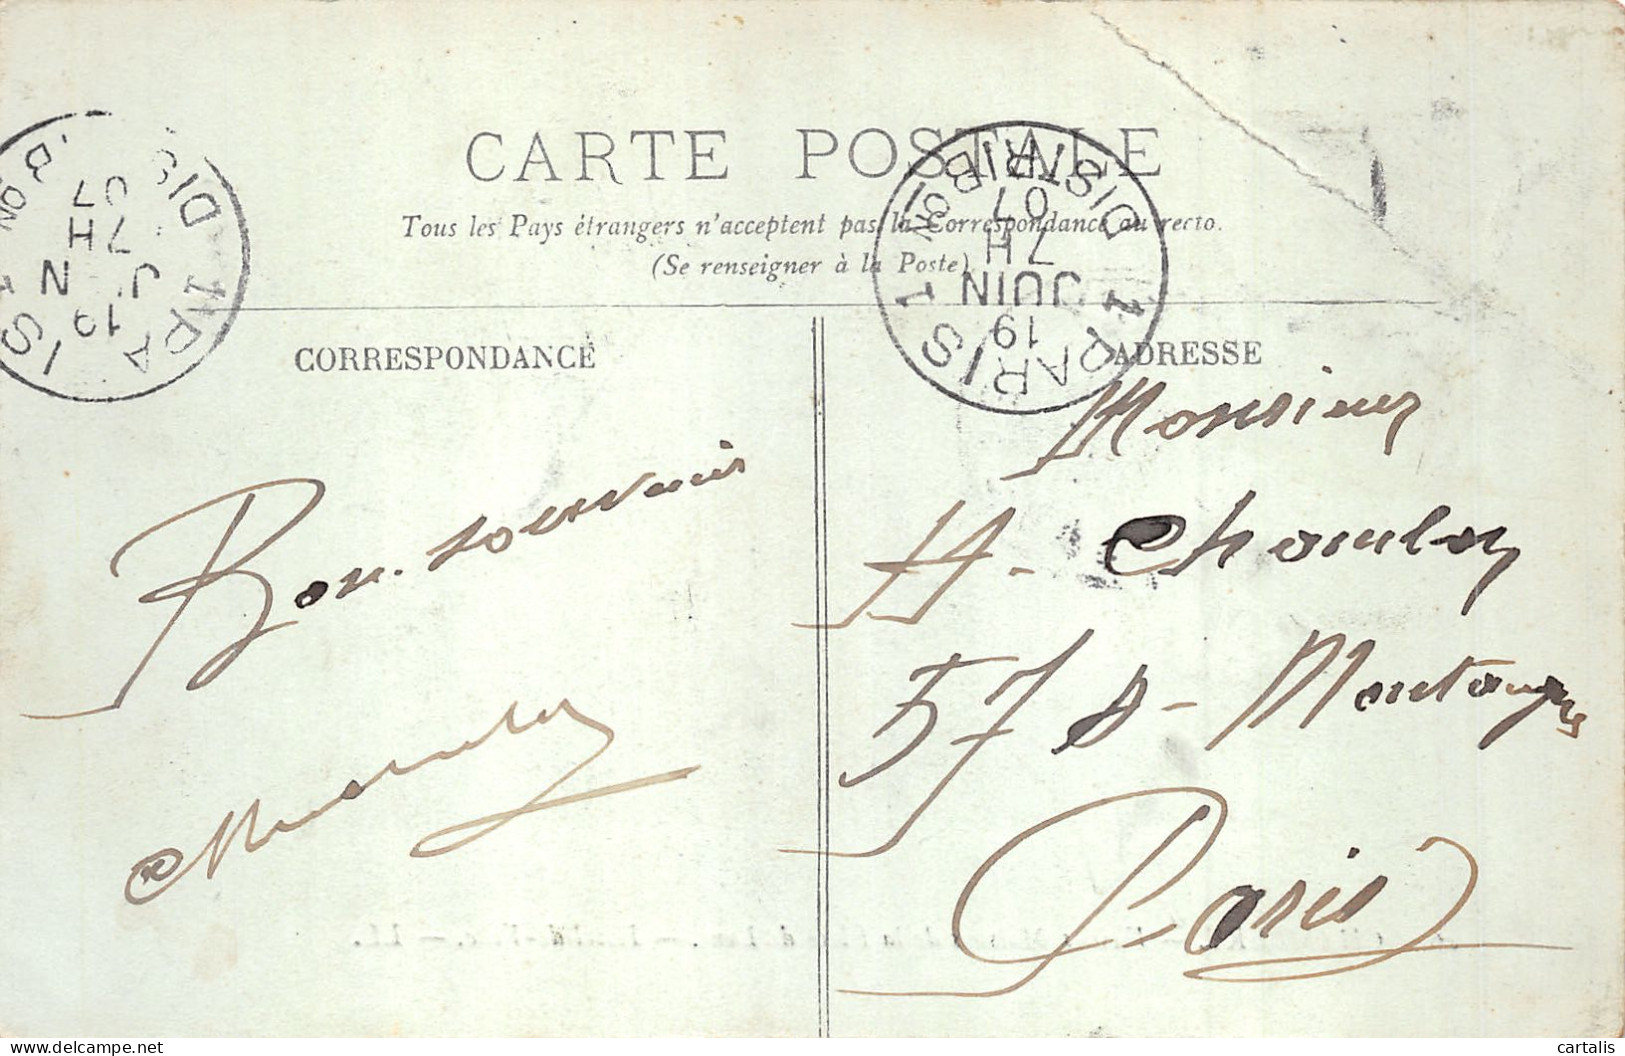 CARTE POSTALE
Tous les Pays étrangers n'acceptent pas la Correspondance au recto.
(Se renseigner à la Poste)
CORRESPONDANCE
ADRESSE
PARIS 1
DISTRIB
19
JUIN
7H
07
PARIS 1
DIS
19
7H
07
Bon souvenir
Monsieur
H. Choulou
57 Bd Montaigne
Paris
delcampe.net
cartalis